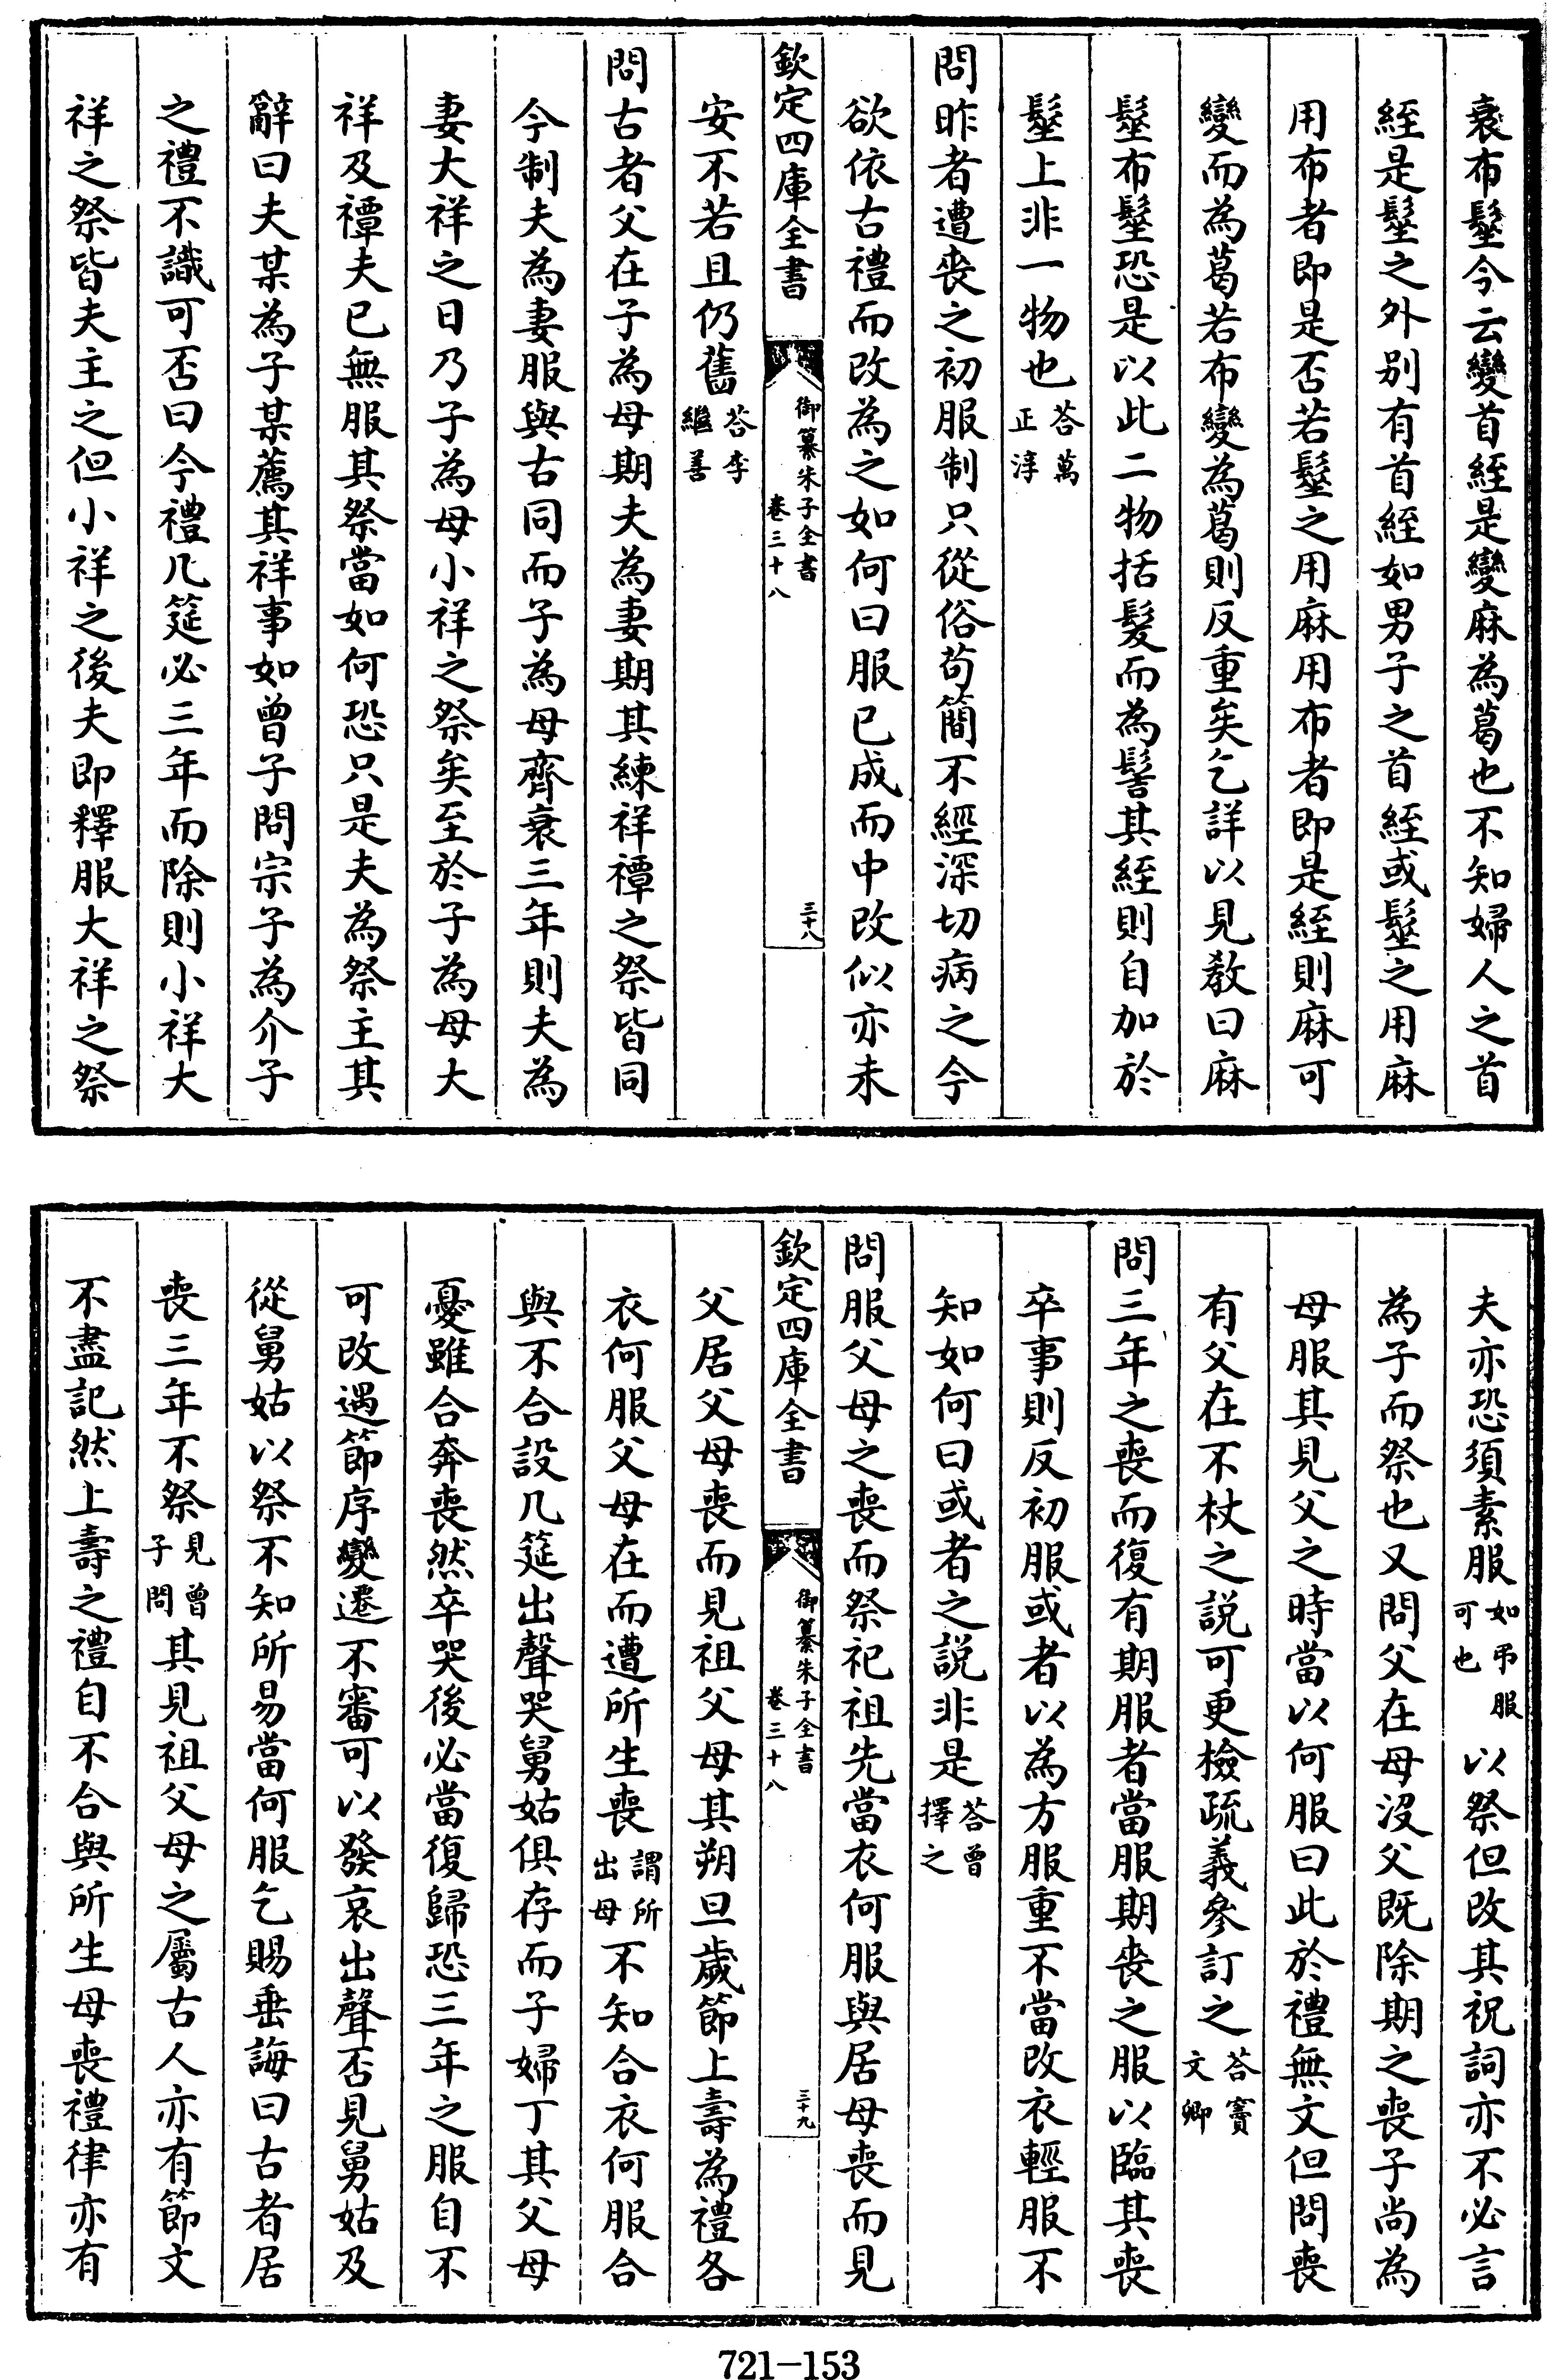 衰布髽今云變首絰是變麻為葛也不知婦人之首
絰是髽之外别有首絰如男子之首絰或髽之用麻
用布者即是否若髽之用麻用布者即是絰則麻可
變而為葛若布變為葛則反重矣乞詳以見教曰麻
髽布髽恐是以此二物括髮而為髻其絰則自加於
髽上非一物也答萬正淳
問昨者遭喪之初服制只從俗苟簡不經深切病之今
欲依古禮而改為之如何曰服已成而中改似亦未
欽定四庫全書 御纂朱子全書 卷三十八 三十八
安不若且仍舊答李繼善
問古者父在子為母期夫為妻期其練祥禫之祭皆同
今制夫為妻服與古同而子為母齊衰三年則夫為
妻大祥之日乃子為母小祥之祭矣至於子為母大
祥及禫夫已無服其祭當如何恐只是夫為祭主其
辭曰夫某為子某薦其祥事如曾子問宗子為介子
之禮不識可否曰今禮几筵必三年而除則小祥大
祥之祭皆夫主之但小祥之後夫即釋服大祥之祭
夫亦恐須素服如弔服可也以祭但改其祝詞亦不必言
為子而祭也又問父在母沒父既除期之喪子尚為
母服其見父之時當以何服曰此於禮無文但問喪
有父在不杖之説可更檢疏義參訂之答竇文卿
問三年之喪而復有期服者當服期喪之服以臨其喪
卒事則反初服或者以為方服重不當改衣輕服不
知如何曰或者之説非是答曾擇之
問服父母之喪而祭祀祖先當衣何服與居母喪而見
欽定四庫全書 御纂朱子全書 卷三十八 三十九
父居父母喪而見祖父母其朔旦歲節上壽為禮各
衣何服父母在而遭所生喪謂所出母不知合衣何服合
與不合設几筵出聲哭舅姑俱存而子婦丁其父母
憂雖合奔喪然卒哭後必當復歸恐三年之服自不
可改遇節序變遷不審可以發哀出聲否見舅姑及
從舅姑以祭不知所易當何服乞賜垂誨曰古者居
喪三年不祭見曾子問其見祖父母之屬古人亦有節文
不盡記然上壽之禮自不合與所生母喪禮律亦有
721-153